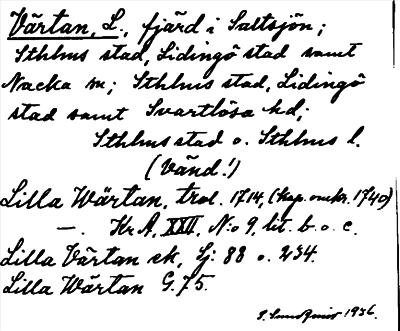 Värtan, L., fjärd i Saltsjön;
Sthlms stad, Lidingö stad samt
Nacka sn; Sthlms stad, Lidingö
stad samt Svartlösa hd;
Sthlms stad o. Sthlms l.
(Vänd!)
Lilla Wärtan, trol. 1714, (kop. omkr. 1740)
—. Kr A, XXII, N:o 9, lit. b. o. c.
Lilla Värtan ek, Lj: 88 o. 234.
Lilla Wärtan G. 75.
1936.